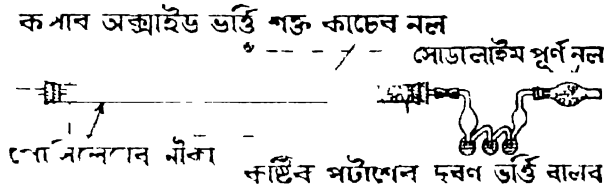 কপাব অক্সাইড ভর্ত্তি শক্ত কাচেব নল
সোডালাইম পূর্ণ নল
নৌকা
কষ্টিক পটাশেব দ্রবণ ভর্ত্তি বালব